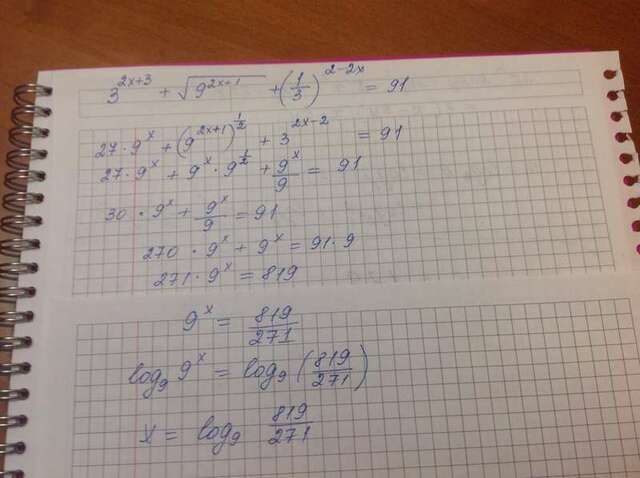 3^{2x+3} + √(9^{2x+1}) + (1/3)^{2-2x} = 91
27 · 9^x + (9^{2x+1})^{1/2} + 3^{2x-2} = 91
27 · 9^x + 9^x · 9^{1/2} + 9^x/9 = 91
30 · 9^x + 9^x/9 = 91
270 · 9^x + 9^x = 91 · 9
271 · 9^x = 819
9^x = 819/271
log_9 9^x = log_9 (819/271)
x = log_9 819/271